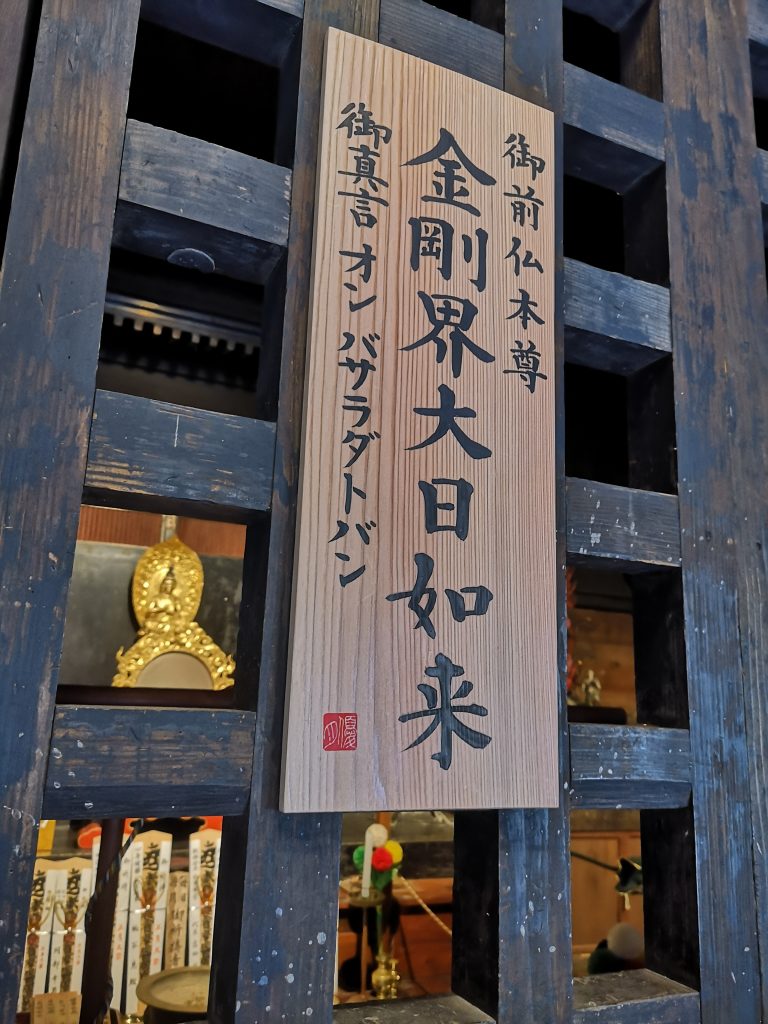 御前仏本尊
金剛界大日如来
御真言 オン バサラダトバン